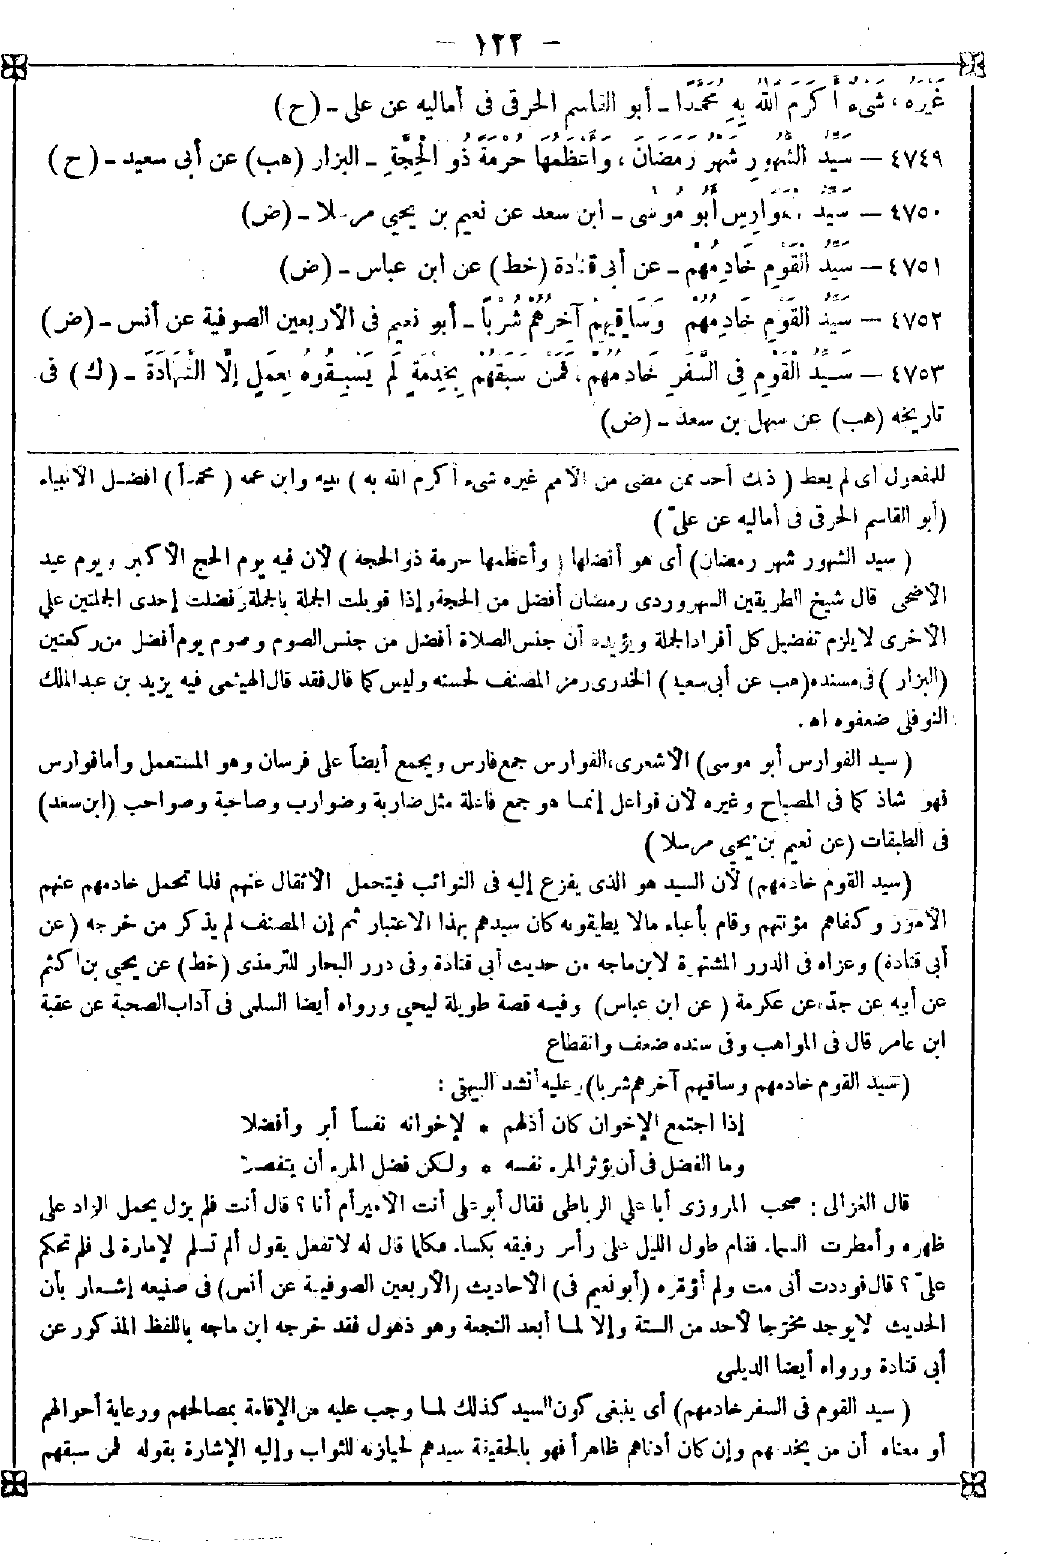 - ١٢٢ -
غَيْرَهُ، شَىْءٌ أَكْرَمَ اللهُ بِهِ مُحَمَّدًا - أبو القاسم الحرقى فى أماليه عن على - (ح)
٤٧٤٩ - سَيِّدُ الشُّهُورِ شَهْرُ رَمَضَانَ، وَأَعْظَمُهَا حُرْمَةً ذُو الْحِجَّةِ - البزار (هب) عن أبى سعيد - (ح)
٤٧٥٠ - سَيِّدُ الْفَوَارِسِ أَبُو مُوسَى - ابن سعد عن نعيم بن يحيى مرسلا - (ض)
٤٧٥١ - سَيِّدُ الْقَوْمِ خَادِمُهُمْ - عن أبى قتادة (خط) عن ابن عباس - (ض)
٤٧٥٢ - سَيِّدُ الْقَوْمِ خَادِمُهُمْ وَسَاقِيهِمْ آخِرُهُمْ شُرْبًا - أبو نعيم فى الأربعين الصوفية عن أنس - (ض)
٤٧٥٣ - سَيِّدُ الْقَوْمِ فِى السَّفَرِ خَادِمُهُمْ، فَمَنْ سَبَقَهُمْ بِخِدْمَةٍ لَمْ يَسْبِقُوهُ بِعَمَلٍ إِلَّا الشَّهَادَةَ - (ك) فى
تاريخه (هب) عن سهل بن سعد - (ض)
للمفعول أى لم يعط (ذلك أحد ممن مضى من الأمم غيره شىء أكرم الله به) نبيه وابن عمه (محمداً) أفضل الأنبياء
(أبو القاسم الحرقى فى أماليه عن علىّ)
(سيد الشهور شهر رمضان) أى هو أفضلها (وأعظمها حرمة ذو الحجة) لأن فيه يوم الحج الأكبر ويوم عيد
الأضحى قال شيخ الطريقين السهروردى رمضان أفضل من الحجة وإذا قوبلت الجملة بالجملة وفضلت إحدى الجملتين على
الأخرى لا يلزم تفضيل كل أفراد الجملة ويؤيده أن جنس الصلاة أفضل من جنس الصوم وصوم يوم أفضل من ركعتين
(البزار) فى مسنده (هب عن أبى سعيد) الخدرى رمز المصنف لحسنه وليس كما قال فقد قال الهيثمى فيه يزيد بن عبد الملك
النوفلى ضعفوه اهـ.
(سيد الفوارس أبو موسى) الأشعرى، الفوارس جمع فارس ويجمع أيضاً على فرسان وهو المستعمل وأما فوارس
فهو شاذ كما فى المصباح وغيره لأن فواعل إنما هو جمع فاعلة مثل ضاربة وضوارب وصاحبة وصواحب (ابن سعد)
فى الطبقات (عن نعيم بن يحيى مرسلا)
(سيد القوم خادمهم) لأن السيد هو الذى يفزع إليه فى النوائب فيتحمل الأثقال عنهم فلما تحمل خادمهم عنهم
الأمور وكفاهم مؤنتهم وقام بأعباء مالا يطيقونه كان سيدهم بهذا الاعتبار ثم إن المصنف لم يذكر من خرجه (عن
أبى قتادة) وعزاه فى الدرر المشتهرة لابن ماجه من حديث أبى قتادة وفى درر البحار للترمذى (خط) عن يحيى بن أكثم
عن أبيه عن جده عن عكرمة (عن ابن عباس) وفيه قصة طويلة ليحيى ورواه أيضا السلمى فى آداب الصحبة عن عقبة
ابن عامر قال فى المواهب وفى سنده ضعف وانقطاع
(سيد القوم خادمهم وساقيهم آخرهم شربا) وعليه أنشد البيهقى :
إذا اجتمع الإخوان كان أذلهم * لإخوانه نفساً أبر وأفضلا
وما الفضل فى أن يؤثر المرء نفسه * ولكن فضل المرء أن يتفضلا
قال الغزالى : صحب المروزى أبا على الرباطى فقال أبو على أنت الأمير أم أنا ؟ قال أنت فلم يزل يحمل الزاد على
ظهره وأمطرت السماء فقام طول الليل على رأس رفيقه بكساء فكلما قال له لا تفعل يقول ألم تسلم الإمارة لى فلم تحكم
علىّ ؟ قال فوددت أنى مت ولم أؤمره (أبو نعيم فى) الأحاديث (الأربعين الصوفية عن أنس) فى صنيعه إشعار بأن
الحديث لا يوجد مخرّجا لأحد من الستة وإلا لما أبعد النجعة وهو ذهول فقد خرجه ابن ماجه باللفظ المذكور عن
أبى قتادة ورواه أيضا الديلمى
(سيد القوم فى السفر خادمهم) أى ينبغى كون السيد كذلك لما وجب عليه من الإقامة بمصالحهم ورعاية أحوالهم
أو معناه أن من يخدمهم وإن كان أدناهم ظاهراً فهو بالحقيقة سيدهم لحيازته للثواب وإليه الإشارة بقوله فمن سبقهم